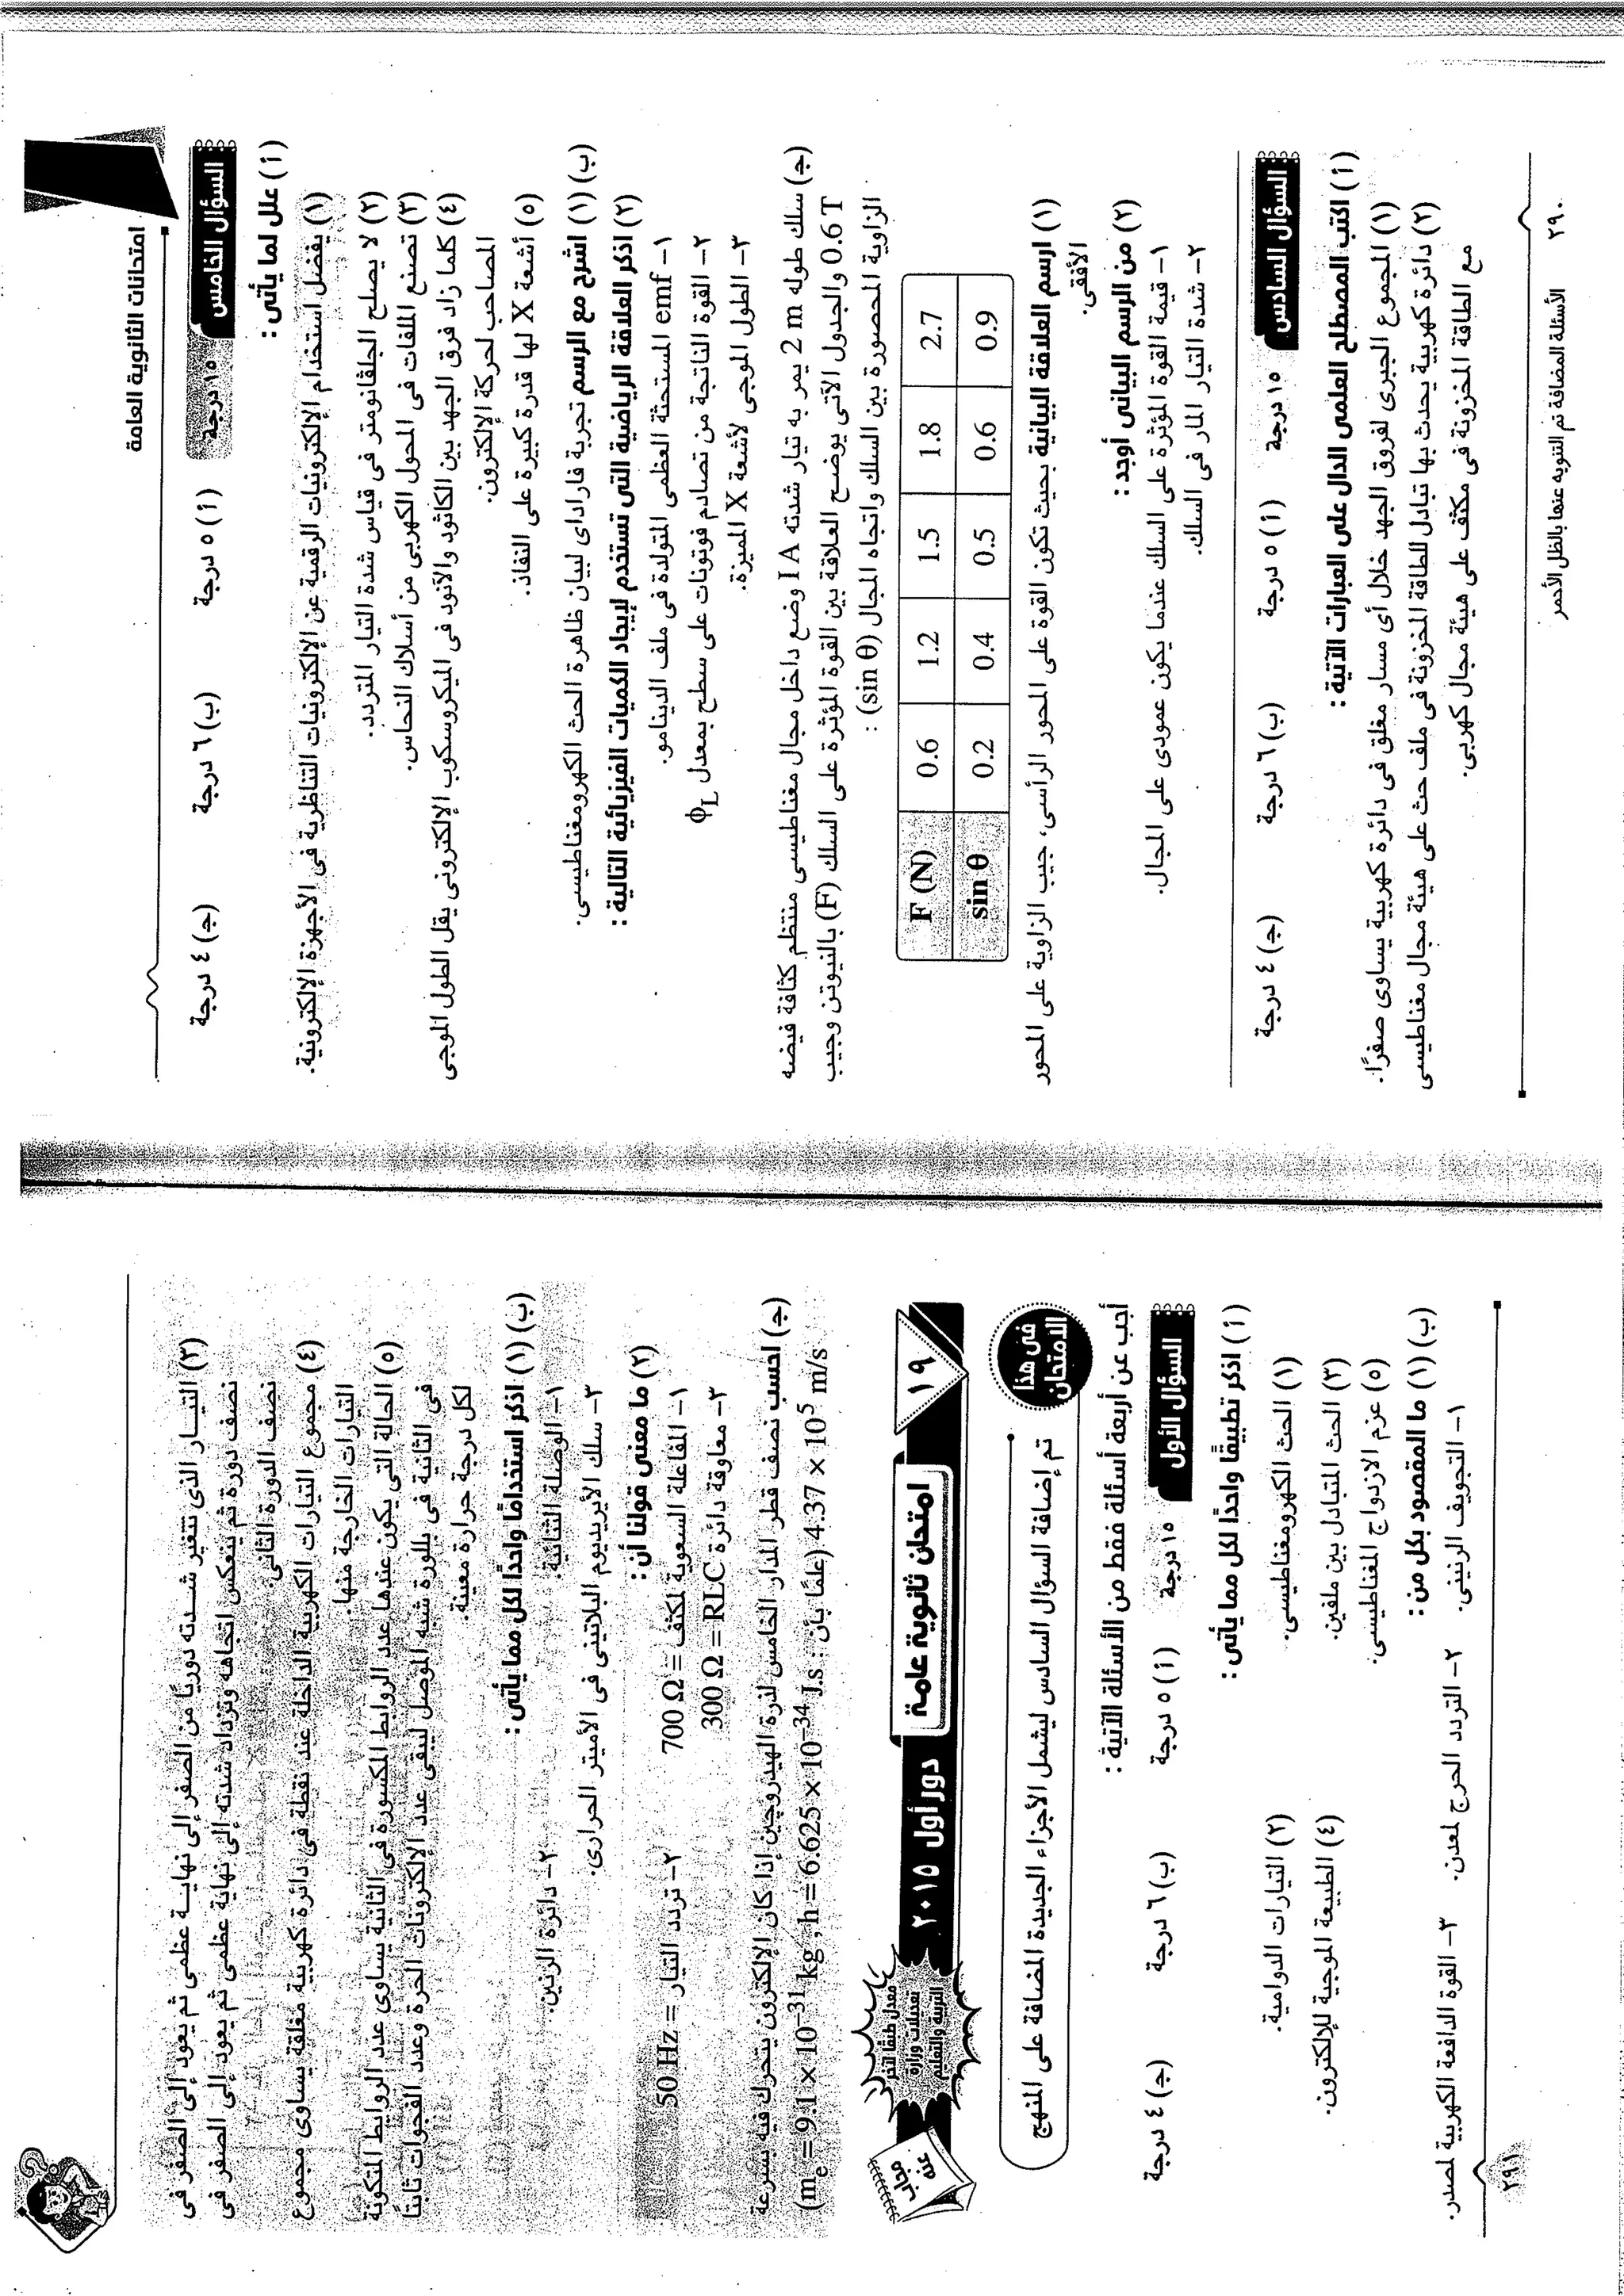 امتحانات الثانوية العامة
السؤال الخامس ١٥ درجة (أ) ٥ درجة (ب) ٦ درجة (جـ) ٤ درجة
(أ) علل لما يأتى :
(١) يفضل استخدام الإلكترونيات الرقمية عن الإلكترونيات التناظرية فى الأجهزة الإلكترونية.
(٢) لا يصلح الجلڤانومتر فى قياس شدة التيار المتردد.
(٣) تصنع الملفات فى المحول الكهربى من أسلاك النحاس.
(٤) كلما زاد فرق الجهد بين الكاثود والآنود فى الميكروسكوب الإلكترونى يقل الطول الموجى
المصاحب لحركة الإلكترون.
(٥) أشعة X لها قدرة كبيرة على النفاذ.
(ب) (١) اشرح مع الرسم تجربة فاراداى لبيان ظاهرة الحث الكهرومغناطيسى.
(٢) اذكر العلاقة الرياضية التى تستخدم لإيجاد الكميات الفيزيائية التالية :
١- emf المستحثة العظمى المتولدة فى ملف الدينامو.
٢- القوة الناتجة من تصادم فوتونات على سطح بمعدل ϕL
٣- الطول الموجى لأشعة X المميزة.
(جـ) سلك طوله 2 m يمر به تيار شدته I A وضع داخل مجال مغناطيسى منتظم كثافة فيضه
0.6 T والجدول الآتى يوضح العلاقة بين القوة المؤثرة على السلك (F) بالنيوتن وجيب
الزاوية المحصورة بين السلك واتجاه المجال (sin θ) :
F (N) 0.6 1.2 1.5 1.8 2.7
sin θ 0.2 0.4 0.5 0.6 0.9
(١) ارسم العلاقة البيانية بحيث تكون القوة على المحور الرأسى، جيب الزاوية على المحور
الأفقى.
(٢) من الرسم البيانى أوجد :
١- قيمة القوة المؤثرة على السلك عندما يكون عمودى على المجال.
٢- شدة التيار المار فى السلك.
السؤال السادس ١٥ درجة (أ) ٥ درجة (ب) ٦ درجة (جـ) ٤ درجة
(أ) اكتب المصطلح العلمى الدال على العبارات الآتية :
(١) المجموع الجبرى لفروق الجهد خلال أى مسار مغلق فى دائرة كهربية يساوى صفرًا.
(٢) دائرة كهربية يحدث بها تبادل للطاقة المخزونة فى ملف حث على هيئة مجال مغناطيسى
مع الطاقة المخزونة فى مكثف على هيئة مجال كهربى.
٢٩٠ الأسئلة المضافة تم التنويه عنها بالظل الأحمر
(٣) التيــار الذى تتغير شــدته دوريًا من الصفر إلى نهايــة عظمى ثم يعود إلى الصفر فى
نصف دورة ثم ينعكس اتجاهه وتزداد شدته إلى نهاية عظمى ثم يعود إلى الصفر فى
نصف الدورة الثانى.
(٤) مجموع التيارات الكهربية الداخلة عند نقطة فى دائرة كهربية مغلقة يساوى مجموع
التيارات الخارجة منها.
(٥) الحالة التى يكون عندها عدد الروابط المكسورة فى الثانية يساوى عدد الروابط المتكونة
فى الثانية فى بللورة شبه الموصل ليبقى عدد الإلكترونات الحرة وعدد الفجوات ثابتًا
لكل درجة حرارة معينة.
(ب) (١) اذكر استخدامًا واحدًا لكل مما يأتى :
١- الوصلة الثنائية. ٢- دائرة الرنين.
٣- سلك الأيريديوم البلاتينى فى الأميتر الحرارى.
(٢) ما معنى قولنا أن :
١- المفاعلة السعوية لمكثف = 700 Ω ٢- تردد التيار = 50 Hz
٣- معاوقة دائرة RLC = 300 Ω
(جـ) احسب نصف قطر المدار الخامس لذرة الهيدروچين إذا كان الإلكترون يتحرك فيه بسرعة
4.37 × 10⁵ m/s (علمًا بأن : mₑ = 9.1 × 10⁻³¹ kg , h = 6.625 × 10⁻³⁴ J.s)
١٩ امتحان ثانوية عامة دور أول ٢٠١٥
معدل طبقًا لآخر
تعديلات وزارة
التربية والتعليم
مجاب
عنه
فى هذا
الامتحان
تم إضافة السؤال السادس ليشمل الأجزاء الجديدة المضافة على المنهج
أجب عن أربعة أسئلة فقط من الأسئلة الآتية :
السؤال الأول ١٥ درجة (أ) ٥ درجة (ب) ٦ درجة (جـ) ٤ درجة
(أ) اذكر تطبيقًا واحدًا لكل مما يأتى :
(١) الحث الكهرومغناطيسى. (٢) التيارات الدوامية.
(٣) الحث المتبادل بين ملفين. (٤) الطبيعة الموجية للإلكترون.
(٥) عزم الازدواج المغناطيسى.
(ب) (١) ما المقصود بكل من :
١- التجويف الرنينى. ٢- التردد الحرج لمعدن. ٣- القوة الدافعة الكهربية لمصدر.
٢٩١